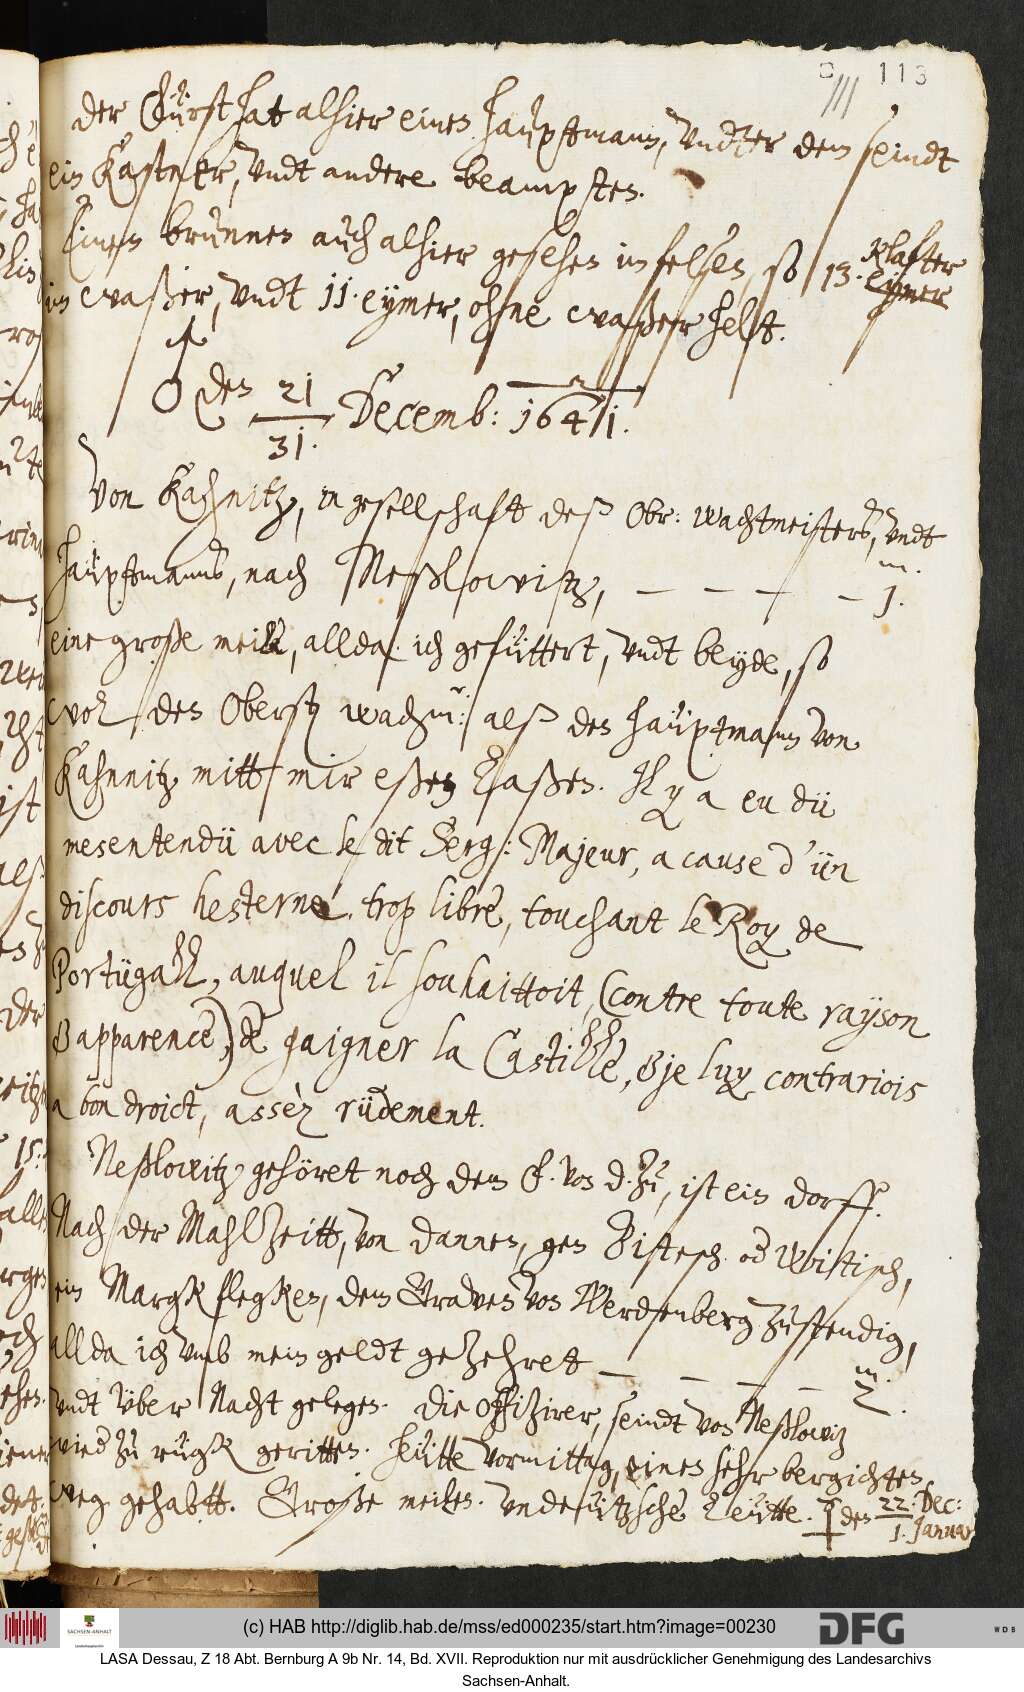 113
der Fürst hat alhier einen Haüptmann, vndter dem seindt
ein Kastner, vndt andere beampten.
Einen brunnen auch alhier gesehen im felsen, so 13. Klafter eymer
im waßer, vndt 11. eymer, ohne waßer helt.
den 21 / 31. Decemb: 1641.
Von Kahnitz, in gesellschaft deß Obr: Wachtmeisters, vndt
Haüptmanns, nach Neßlowitz, — — — — m. 1.
eine große meile, allda ich gefüttert, vndt beyde, so
wol den Oberst wachm: alß den haüptmann von
Kahnnitz mitt mir eßen laßen. Il y a eu dü
mesentendü avec le dit Serg: Majeur, a cause d'ün
discours hesterne, trop libre, touchant le Roy de
Portügall, auquel il souhaittoit, (contre toute rayson
& apparence) de gaigner la Castille, & je luy contrariois
a bon droict, assèz rüdement.
Neßlowitz gehöret noch dem H. von d. Zu, ist ein dorff.
Nach der Mahlzeitt, von dannen, gen Bistesch. od Wistisch,
ein Margkflegken, dem Graven von Werdenberg zustendig,
allda ich vmb mein geldt gezehret — — — — m. 2.
vndt vber Nacht gelegen. Die Offizirer, seindt von Neßlowitz
wied zu rügk geritten. Heütte vormittag, einen sehr bergichten
weg gehabtt. Große meilen. Vndeützsche Leütte. den 22. / 1. Dec: Januar
(c) HAB http://diglib.hab.de/mss/ed000235/start.htm?image=00230
DFG
WDB
SACHSEN-ANHALT
LASA Dessau, Z 18 Abt. Bernburg A 9b Nr. 14, Bd. XVII. Reproduktion nur mit ausdrücklicher Genehmigung des Landesarchivs
Sachsen-Anhalt.